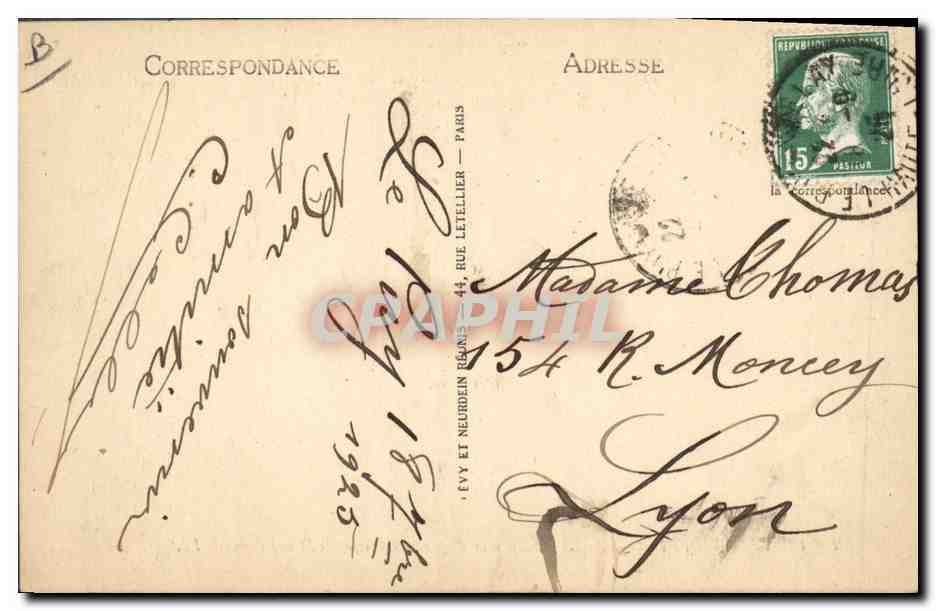 B
CORRESPONDANCE
Le Puy 18 7bre
1925
Bon souvenir
&
amitié
ADRESSE
REPUBLIQUE FRANÇAISE
15
PASTEUR
la correspondance
Madame Thomas
154 R. Moncey
Lyon
ÉVY ET NEURDEIN RÉUNIS — 44, RUE LETELLIER — PARIS
CPRAPHIL